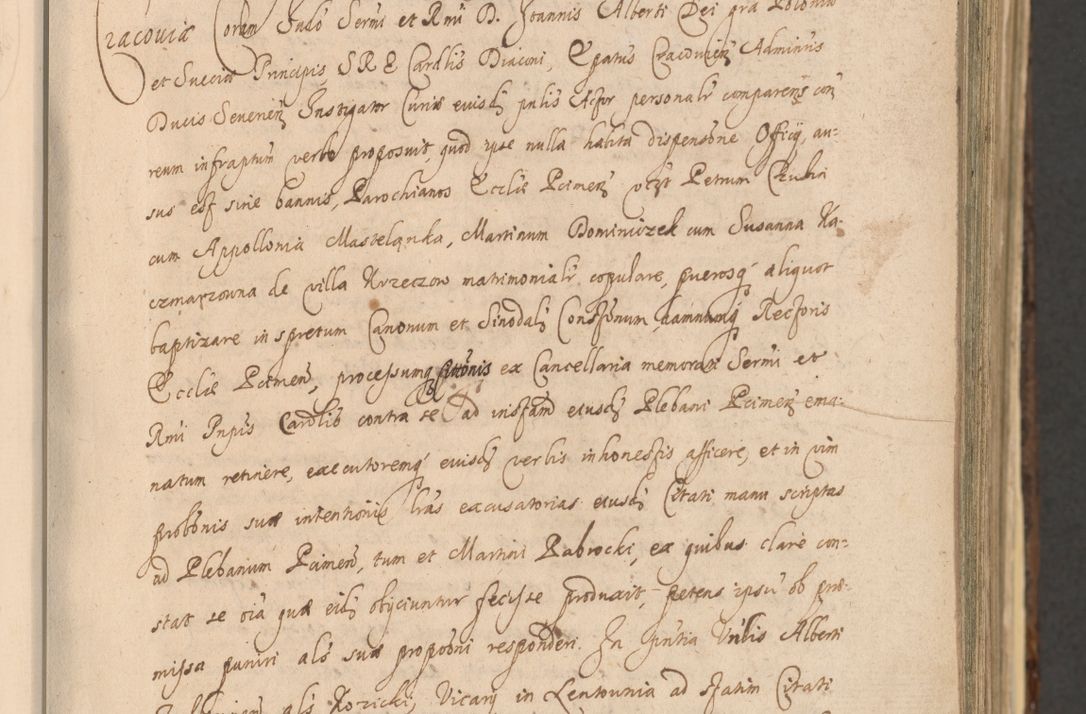 Cracoviæ Coram Judo Sermi et Rmi D. Joannis Alberti Dei gra Poloniæ
et Sueciæ Principis S R E Cardlis Diaconi, Epatus Cracovien Adminris
Ducis Severien Instigator Curiæ eiusd pnlis Actor personalr comparens con
reum infraptum verbo proposuit, quod ipse nulla habita dispensone Officij, au-
sus est sine bannis, Parochianos Ecclæ Pcimen vtzt Petrum Czubin
cum Appollonia Masteląnka, Martinum Dominiczek cum Susanna Ka-
czmarzowna de villa Krzeczow matrimonialr copulare, puerosq aliquot
baptizare in spretum Canonum et Sinodaly Constonum damnumq Rectoris
Ecclæ Pcimen, processumq ex Cancellaria memorati Sermi et
Rmi Pnpis Cardlis contra se ad instam eiusd Plebani Pcimen ema-
natum retinere, exæcutoremq eiusd verbis inhonestis afficere, et in vim
probonis suæ intentionis lras excusatorias eiusd Citati manu scriptas
ad Plebanum Pcimen, tum et Martini Rabrocki, ex quibus clare con-
stat se oia quæ eid obijciuntur fecisse produxit, petens ipsu ob præ-
missa puniri als suæ propobni responderi. In pntia Vnlis Alberti
als Kozicki, Vicarij in Lentownia ad statim Citati